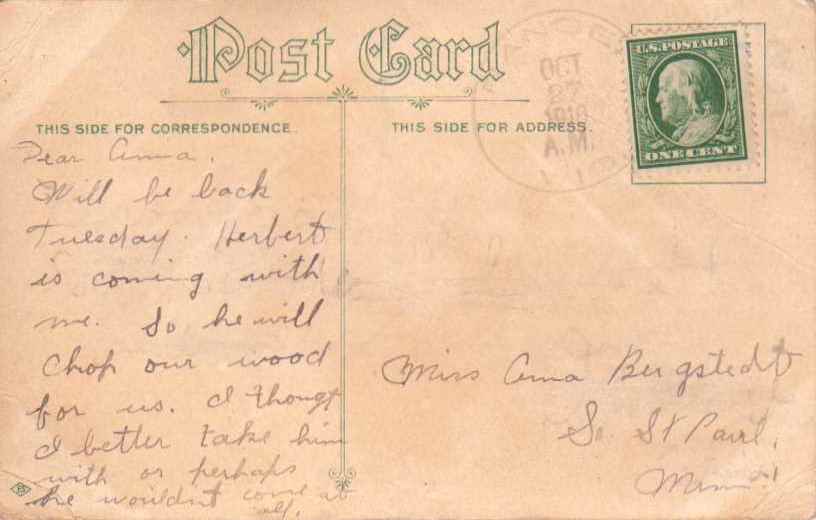 Post Card
THIS SIDE FOR CORRESPONDENCE.
THIS SIDE FOR ADDRESS.
OCT
27
A.M.
U.S. POSTAGE
ONE CENT
Dear Anna,
Will be back
Tuesday. Herbert
is coming with
me. So he will
chop our wood
for us. I thongt
I better take him
with or perhaps
he wouldnt come at
all.
Miss Anna Bergstedt
So. St Paul,
Minn.